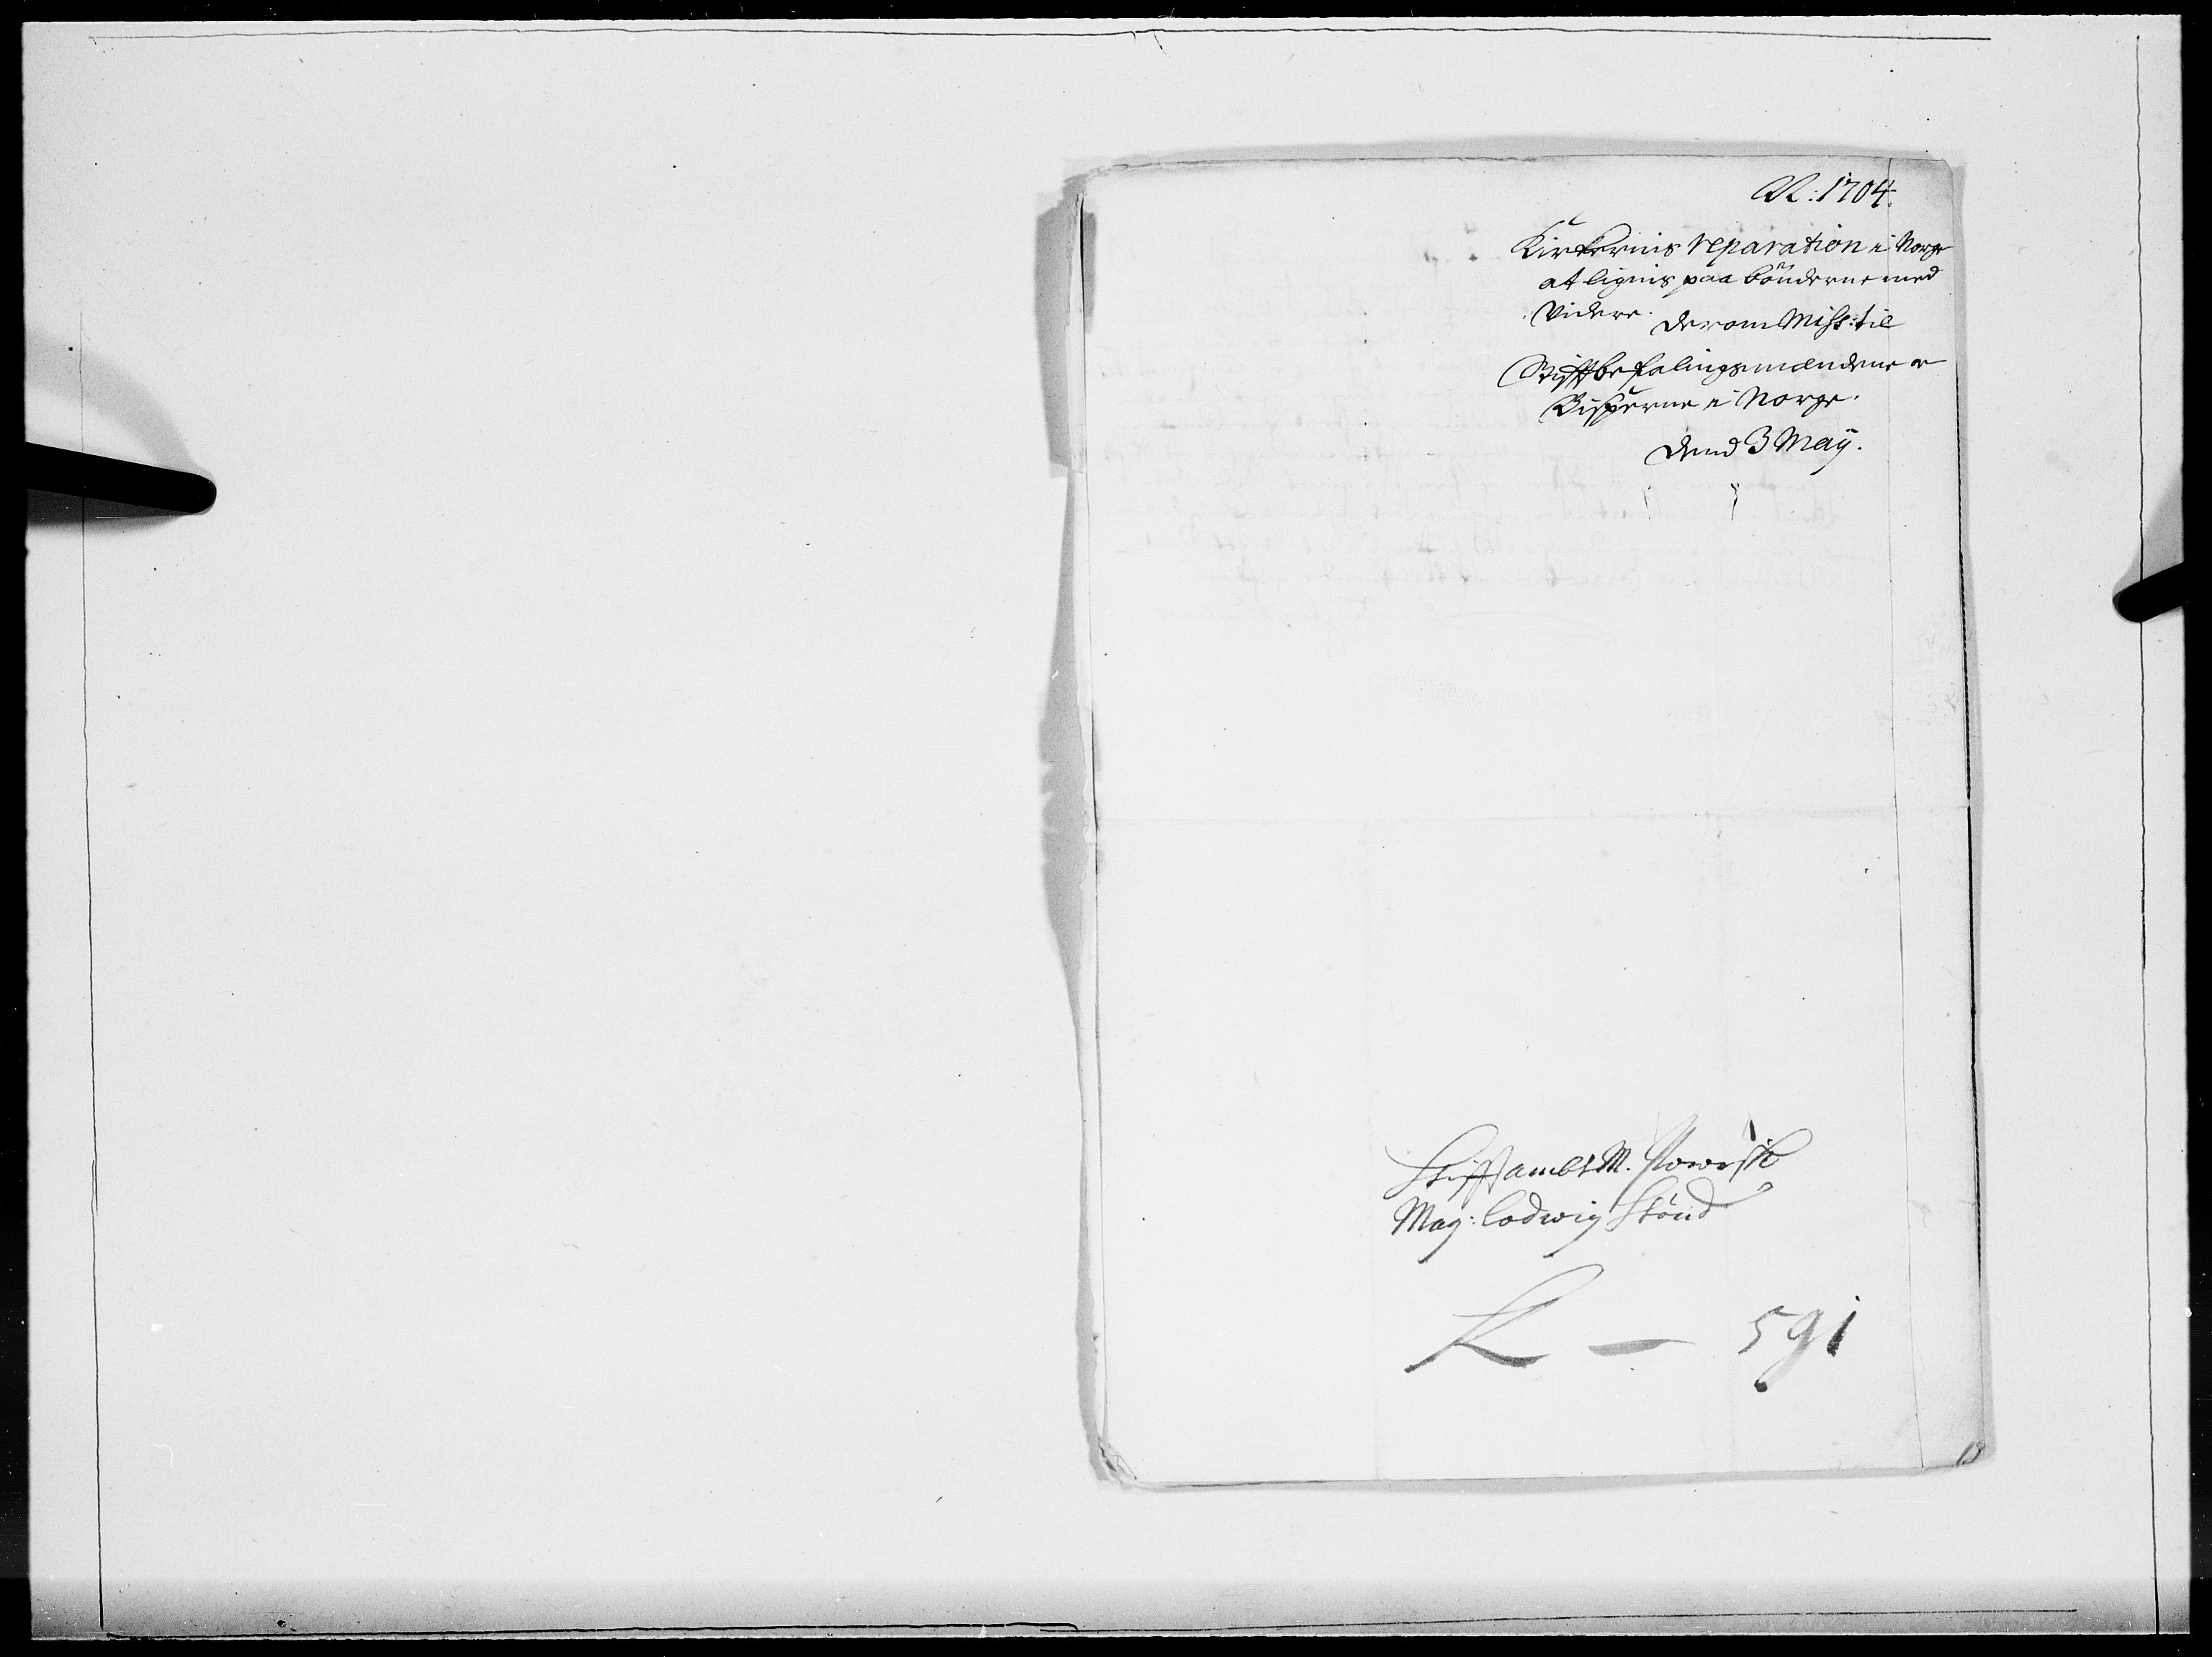 A2: 1704.
Kirkernis reparation i Norge
at lignis paa bönderne med
Videre. derom Miss: til
Stiftbefalingsmændene oc
Bisperne i Norge.
dend 3 Maÿ.
Stifftambt M. Powisk
Mag: Lodwig Stoud
L — 591